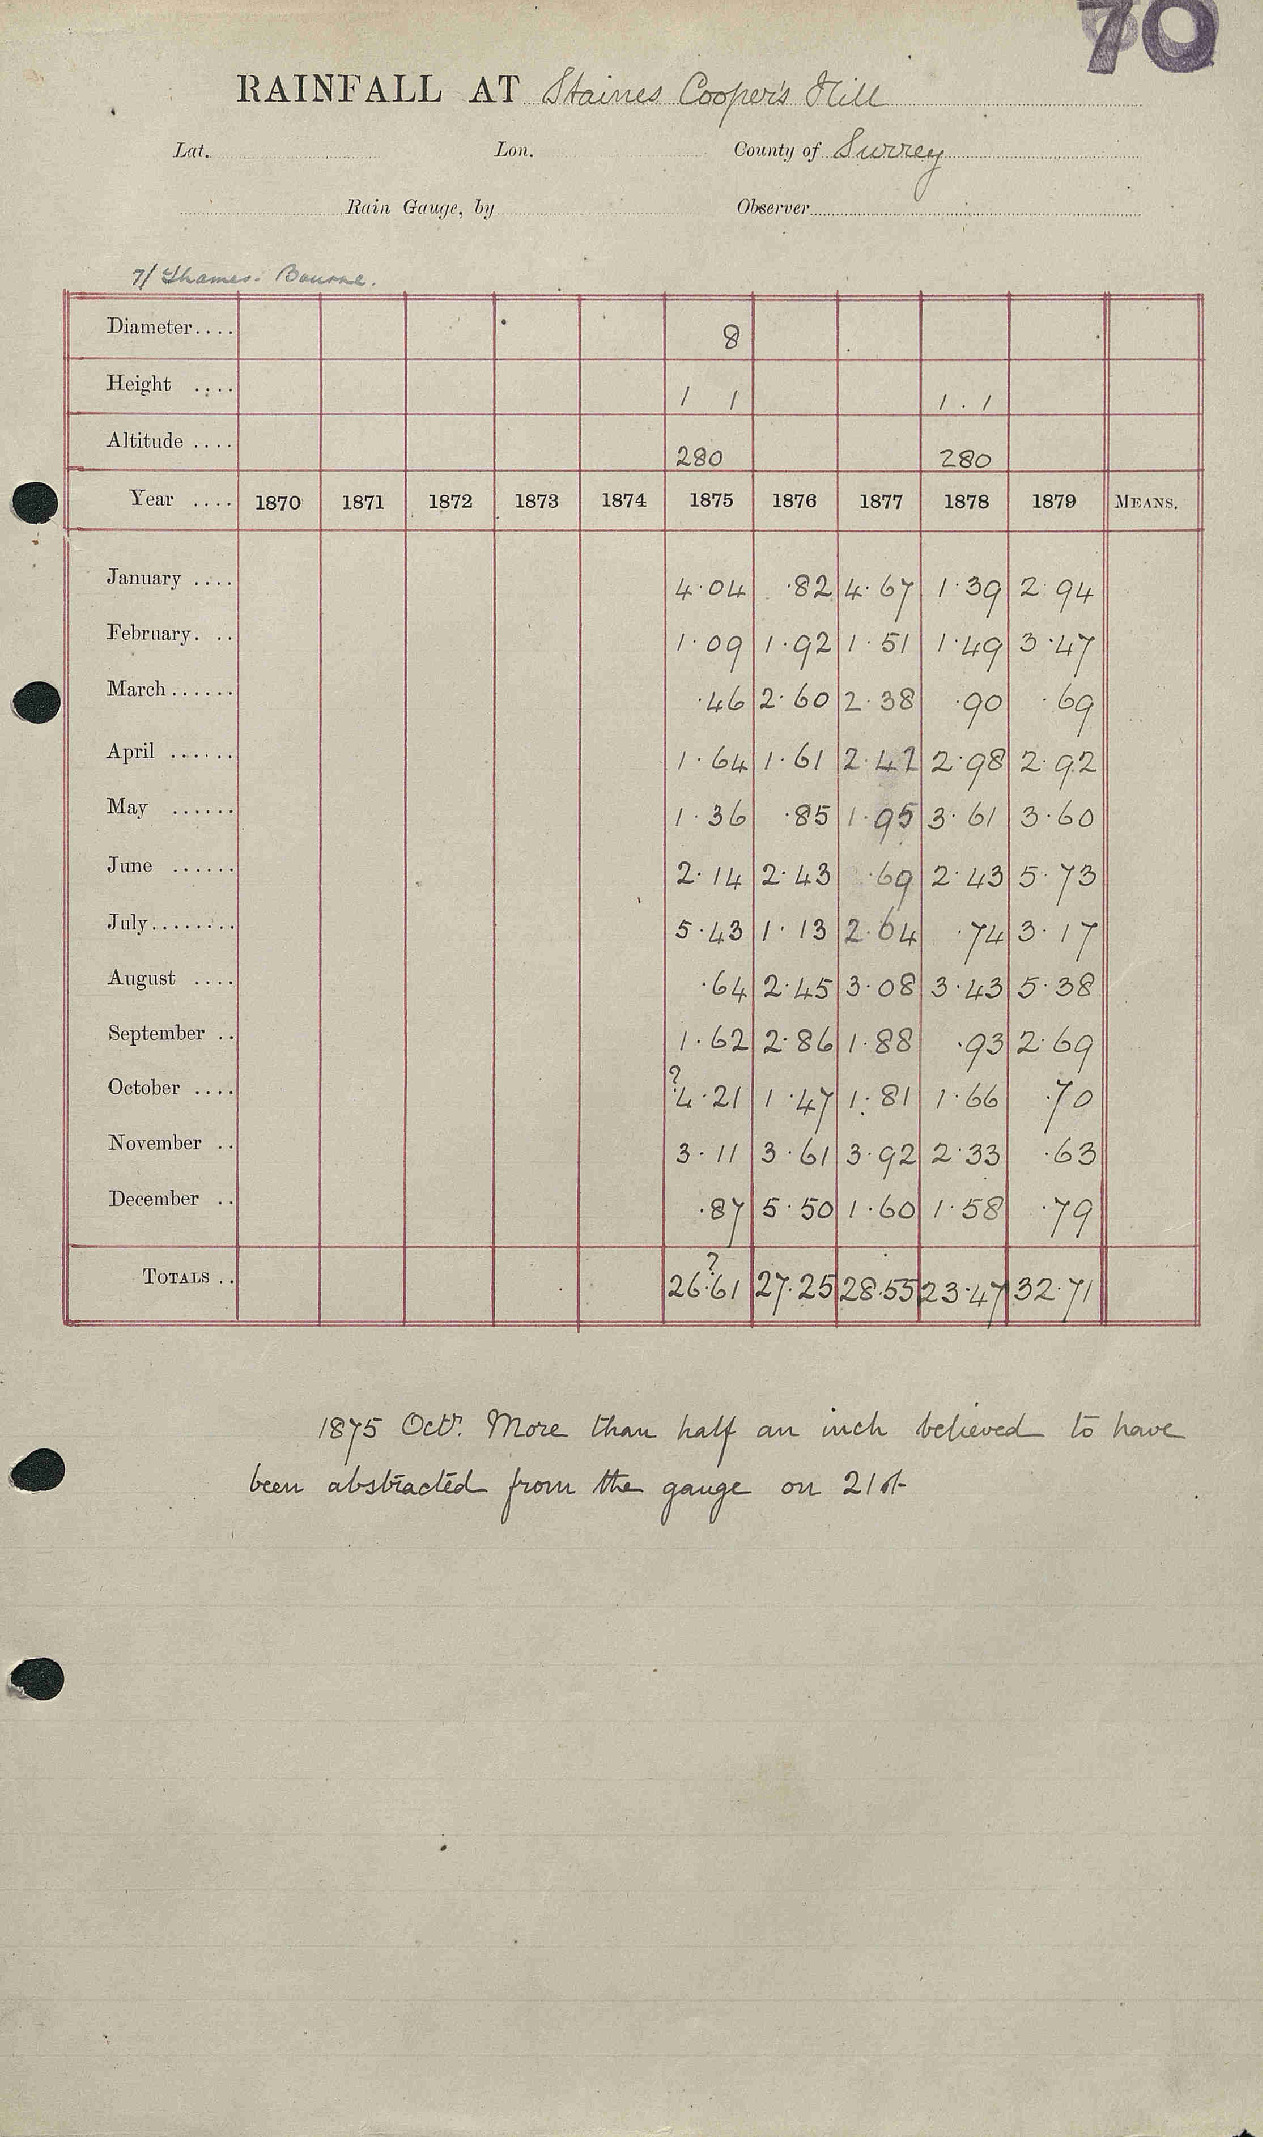 70
RAINFALL AT Staines Cooper's Hill
Lat. Lon. County of Surrey
Rain Gauge, by Observer
7/ Thames. Bourne.
Diameter.... 8
Height .... 1 1 1 . 1
Altitude .... 280 280
Year .... 1870 1871 1872 1873 1874 1875 1876 1877 1878 1879 MEANS.
January .... 4·04 ·82 4·67 1·39 2·94
February. .. 1·09 1·92 1·51 1·49 3·47
March...... ·46 2·60 2·38 ·90 ·69
April ...... 1·64 1·61 2·42 2·98 2·92
May ...... 1·36 ·85 1·95 3·61 3·60
June ...... 2·14 2·43 ·69 2·43 5·73
July........ 5·43 1·13 2·64 ·74 3·17
August .... ·64 2·45 3·08 3·43 5·38
September .. 1·62 2·86 1·88 ·93 2·69
October .... ?4·21 1·47 1·81 1·66 ·70
November .. 3·11 3·61 3·92 2·33 ·63
December .. ·87 5·50 1·60 1·58 ·79
TOTALS .. ?26·61 27·25 28·55 23·47 32·71
1875 Octr. More than half an inch believed to have
been abstracted from the gauge on 21st